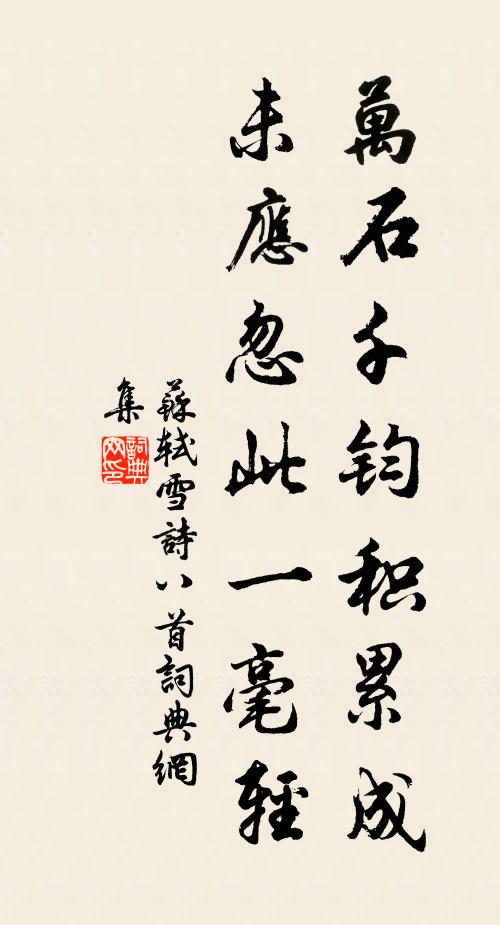 萬石千鈞积累成
未應忽此一毫輕
蘇轼雪詩八首詞典網
集
詞典
网印